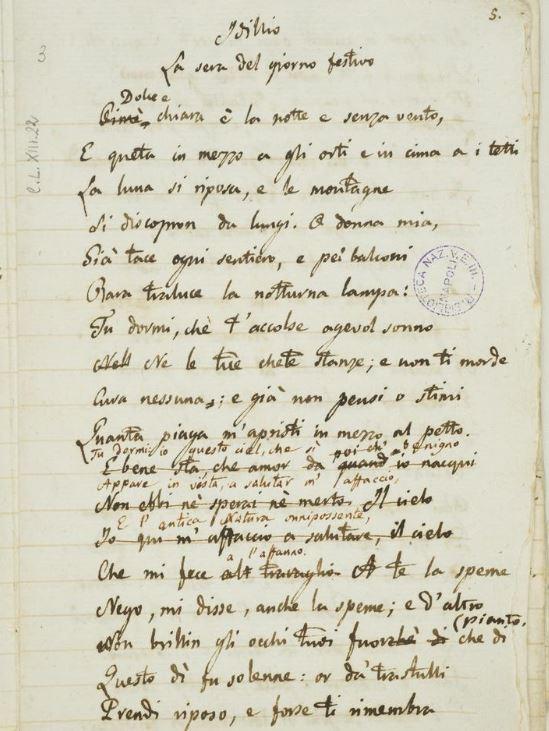 5.
3
C.L. XIII.22
Idillio
La sera del giorno festivo
Dolce e
Oimè, chiara è la notte e senza vento,
E queta in mezzo a gli orti e in cima a i tetti
La luna si riposa, e le montagne
Si discopron da lungi. O donna mia,
Già tace ogni sentiero, e pei balconi
Rara traluce la notturna lampa:
Tu dormi, chè t'accolse agevol sonno
Nell Ne le tue chete stanze; e non ti morde
Cura nessuna; e già non pensi o stimi
Quanta piaga m'apristi in mezzo al petto.
Tu dormi: io questo ciel, che sì benigno
E bene sta, che amor da poi ch' quand io nacqui
Appare in vista, a salutar m'affaccio,
Non ebbi nè sperai nè merto. Il cielo
E l'antica Natura onnipossente,
Io qui m'affaccio a salutare, il cielo
a l'affanno.
Che mi fece alt travaglio. A te la speme
Nego, mi disse, anche la speme; e d'altro
Non brillin gli occhi tuoi fuorchè di che di (pianto.
Questo dì fu solenne: or da' trastulli
Prendi riposo, e forse ti rimembra